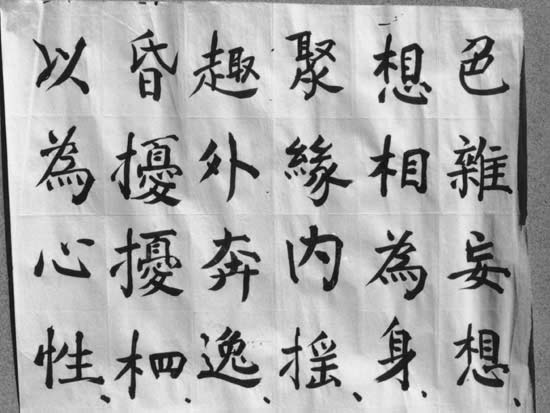 色雜妄想、
想相為身、
聚緣内摇、
趣外奔逸、
昏擾擾柶、
以為心性、